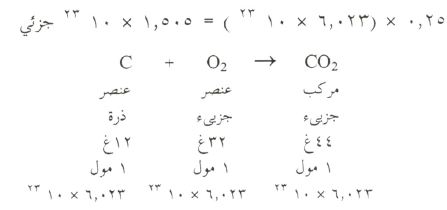 ٠,٢٥ × (٦,٠٢٣ × ١٠ ²³) = ١,٥٠٥ × ١٠ ²³ جزئي
C + O₂ → CO₂
عنصر عنصر مركب
ذرة جزيىء جزيىء
١٢غ ٣٢غ ٤٤غ
١ مول ١ مول ١ مول
٦,٠٢٣ × ١٠ ²³ ٦,٠٢٣ × ١٠ ²³ ٦,٠٢٣ × ١٠ ²³